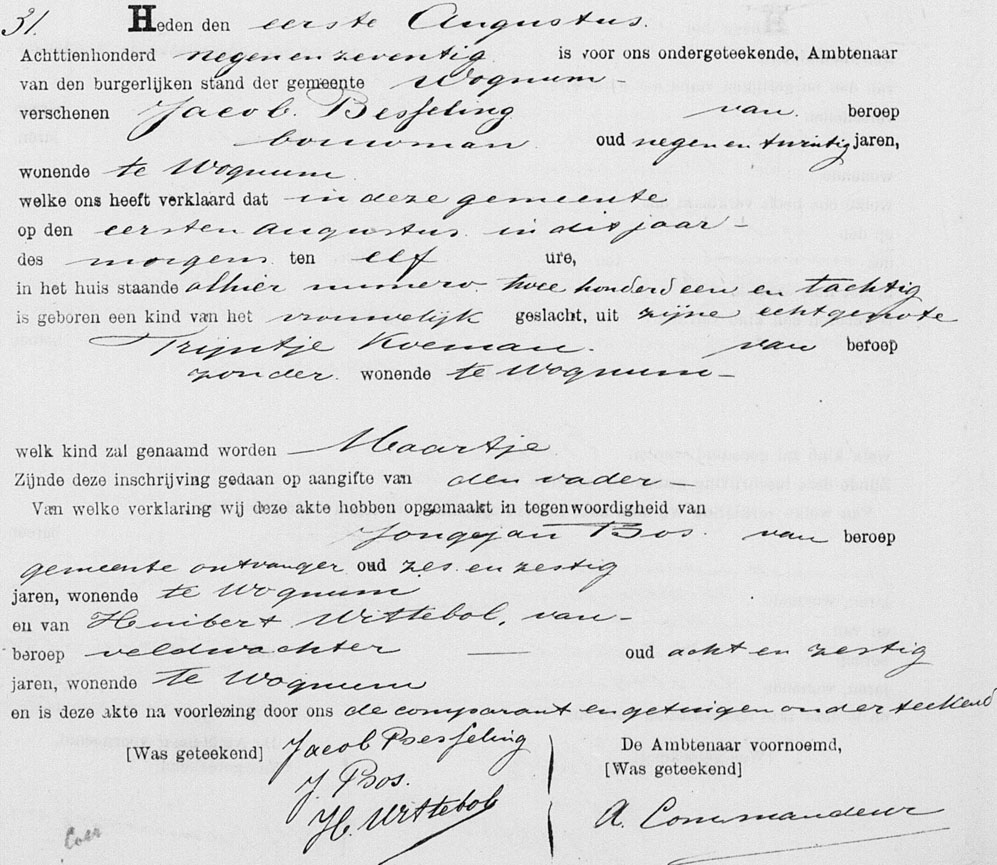 31. Heden den eerste Augustus.
Achttienhonderd negen en zeventig is voor ons ondergeteekende, Ambtenaar
van den burgerlijken stand der gemeente Wognum -
verschenen Jacob. Besseling van beroep
bouwman oud negen en twintig jaren,
wonende te Wognum
welke ons heeft verklaard dat in deze gemeente
op den eersten Augustus in dit jaar -
des morgens ten elf ure,
in het huis staande alhier numero twee honderd een en tachtig
is geboren een kind van het vrouwelijk geslacht, uit zijne echtgenote
Trijntje Koeman. van beroep
zonder wonende te Wognum -
welk kind zal genaamd worden Maartje
Zijnde deze inschrijving gedaan op aangifte van den vader -
Van welke verklaring wij deze akte hebben opgemaakt in tegenwoordigheid van
Jongejan Bos. van beroep
gemeente ontvanger oud zes en zestig
jaren, wonende te Wognum
en van Huibert Wittebol, van -
beroep veldwachter — oud acht en zestig
jaren, wonende te Wognum
en is deze akte na voorlezing door ons de comparant en getuigen onderteekend
[Was geteekend] Jacob Besseling De Ambtenaar voornoemd,
J. Bos. [Was geteekend]
H. Wittebol A. Commandeur